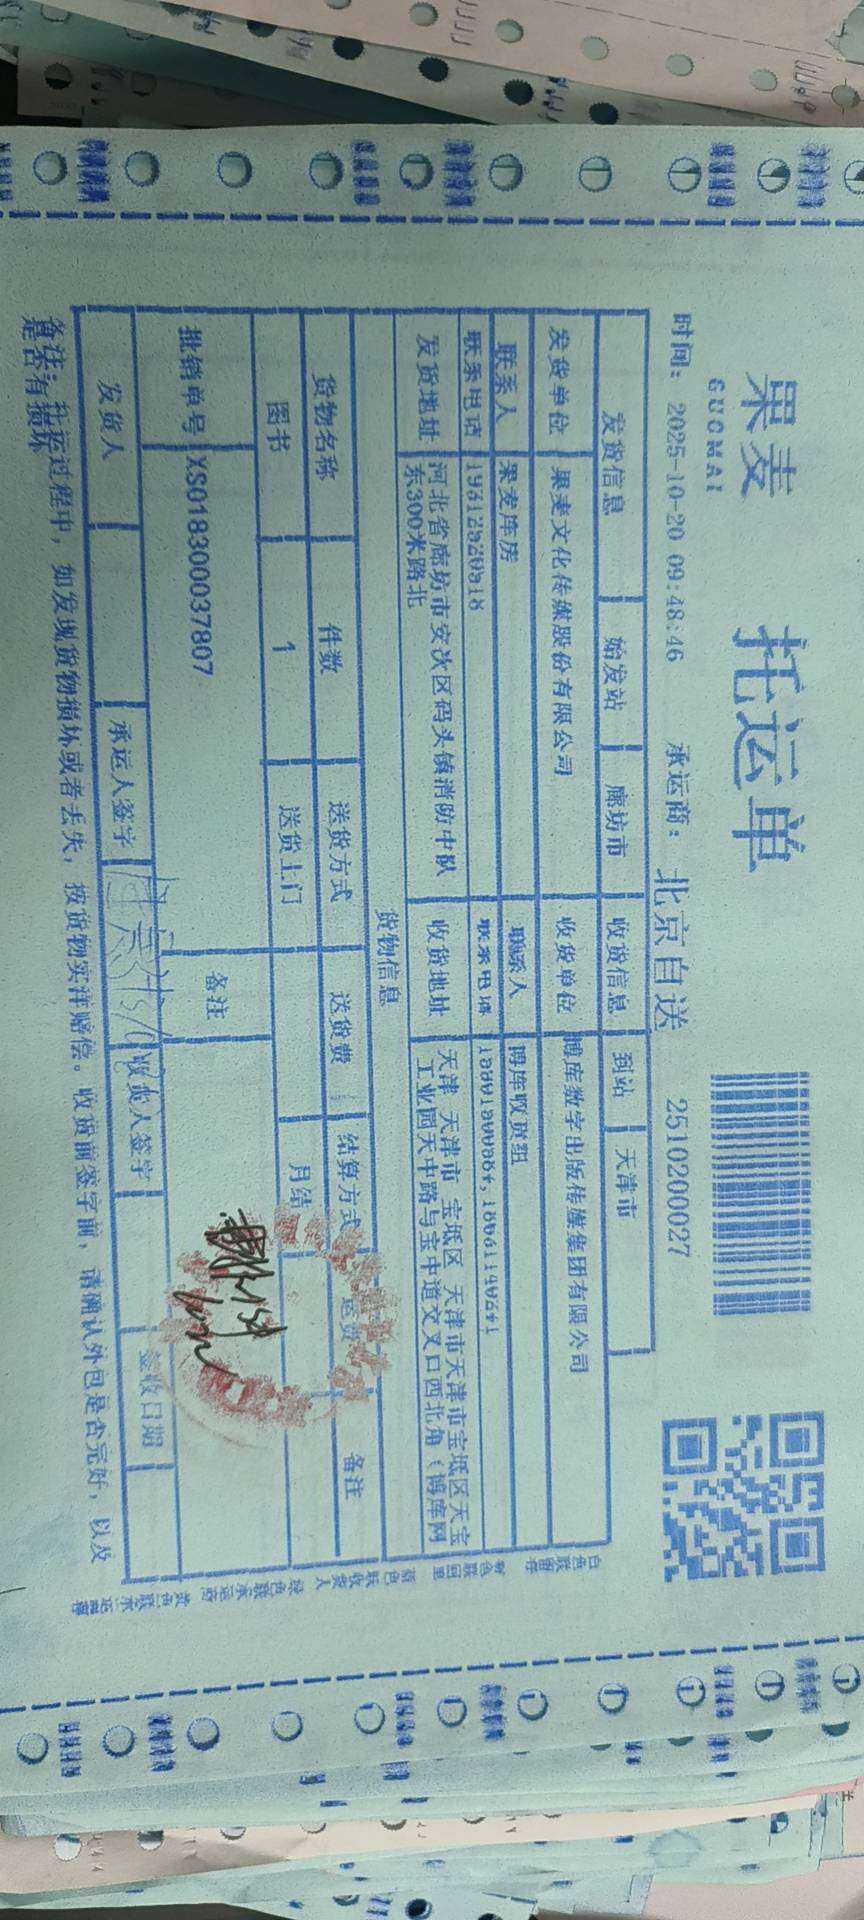 果麦
GUOMAI
托运单
时间: 2025-10-20 09:48:46 承运商: 北京自送 2510200027
发货信息 始发站 廊坊市 收货信息 到站 天津市
发货单位 果麦文化传媒股份有限公司 收货单位 博库数字出版传媒集团有限公司
联系人 果麦库房 联系人 博库收货组
联系电话 联系电话
发货地址 河北省廊坊市安次区码头镇消防中队东300米路北 收货地址 天津 天津市 宝坻区 天津市天津市宝坻区天宝工业园天中路与宝中道交叉口西北角（博库网
货物信息
货物名称 件数 送货方式 送货费 结算方式 运费 备注
图书 1 送货上门 月结
批销单号 XS018300037807 备注
发货人 承运人签字 收货人签字 签收日期
备注: 托运过程中, 如发现货物损坏或者丢失, 按货物实洋赔偿。收货前签字前, 请确认外包是否完好, 以及
是否有损坏